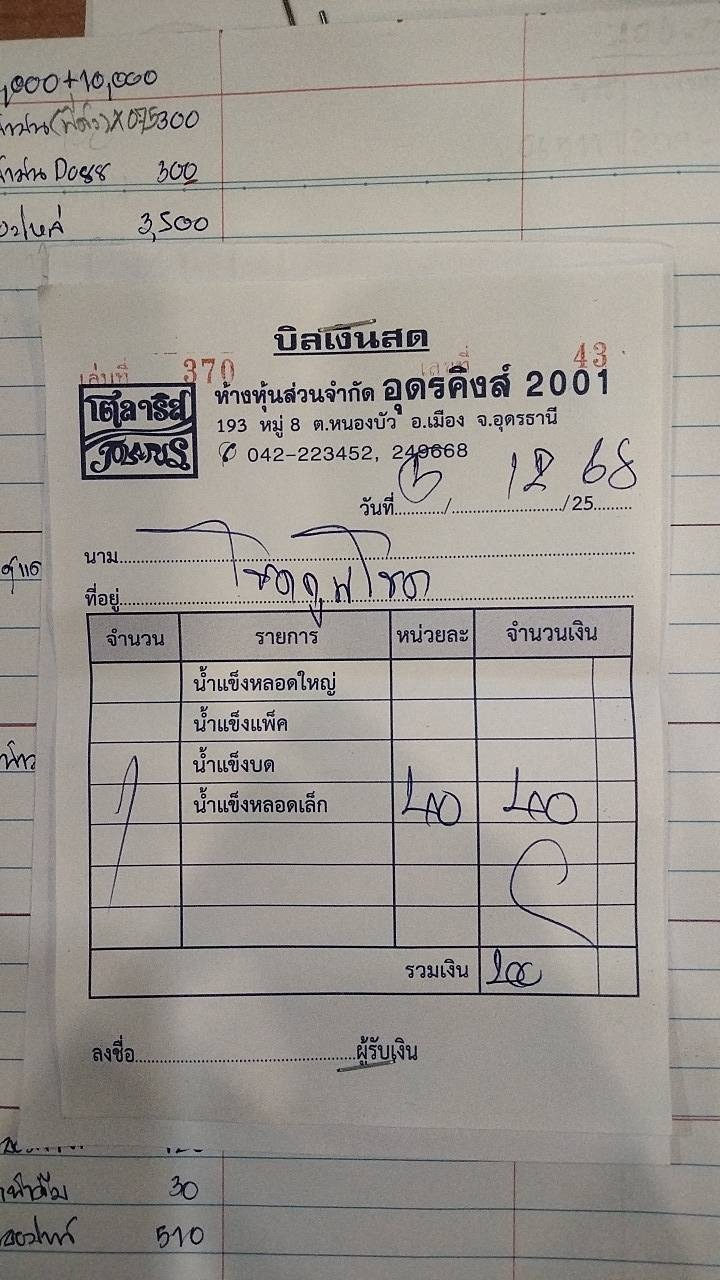 ,000+10,000
300
300
3,500
บิลเงินสด
เล่มที่ 370 เลขที่ 43
โพลาริส
POLARIS
ห้างหุ้นส่วนจำกัด อุดรคิงส์ 2001
193 หมู่ 8 ต.หนองบัว อ.เมือง จ.อุดรธานี
042-223452, 249668
วันที่ 6 / 12 /25 68
นาม
ที่อยู่
จำนวน รายการ หน่วยละ จำนวนเงิน
น้ำแข็งหลอดใหญ่
น้ำแข็งแพ็ค
น้ำแข็งบด
1 น้ำแข็งหลอดเล็ก 40 40
รวมเงิน
ลงชื่อ ผู้รับเงิน
30
510